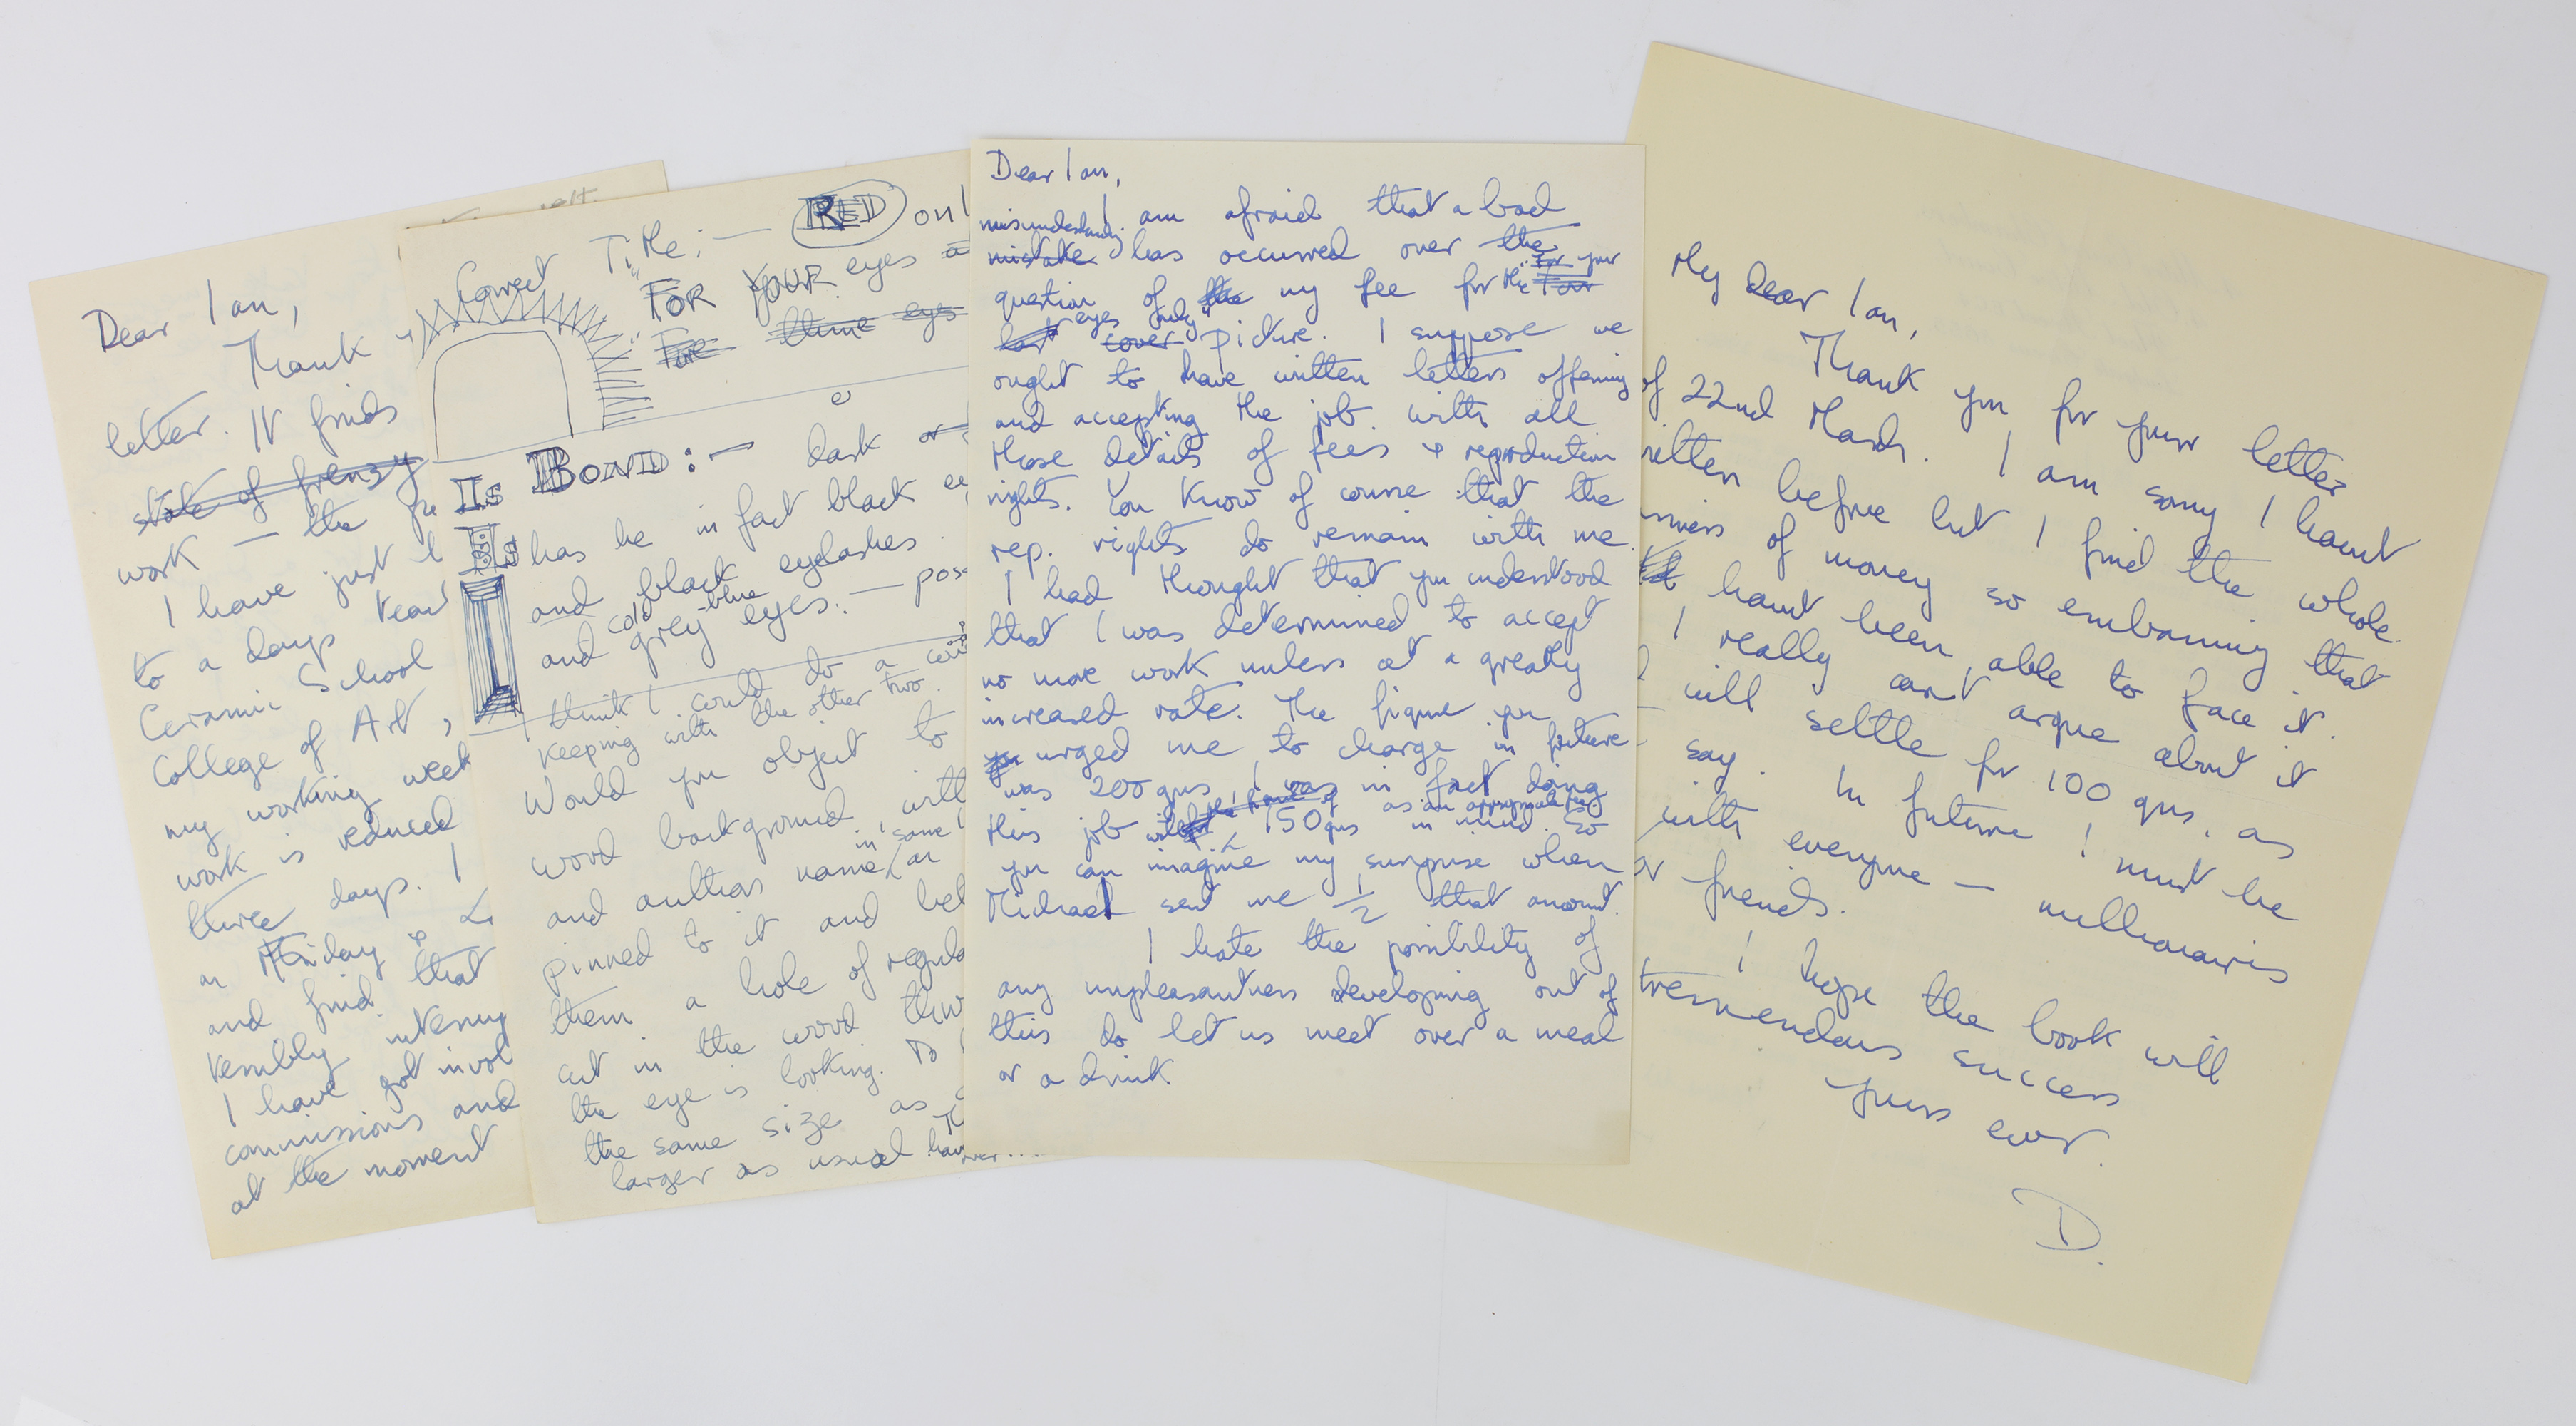 Dear Ian,
Thank
letter. It finds
state of frenzy
work — the
I have just
to a days
Ceramic School
College of Art,
my working week
work is reduced
three days. I
on Friday &
and find that
terribly
I have got invol
commissions and
at the moment
Correct Title: — RED
"FOR YOUR eyes
For thine eyes
Is BOND: — dark or
Is has he in fact black
and black eyelashes
cold blue
and grey eyes. — poss
I think I could do a
keeping with the other two.
Would you object to
wood background, with
in same
and authors name, or
pinned to it and
them a hole of regula
cut in the wood
the eye is looking. To
the same size as
larger as usual
Dear Ian,
I am afraid that a bad
misunderstanding
mistake has occurred over the
For your
question of the my fee for the For
eyes only"
last cover picture. I suppose we
ought to have written letters offering
and accepting the job with all
those details of fees & reproduction
rights. You know of course that the
rep. rights do remain with me.
I had thought that you understood
that I was determined to accept
no more work unless at a greatly
increased rate. The figure you
you urged me to charge in future
was 200 gns, I was in fact doing
as an approximate fee
this job with the figure of 150 gns in mind. So
you can imagine my surprise when
Michael sent me 1/2 that amount.
I hate the possibility of
any unpleasantness developing out of
this do let us meet over a meal
or a drink
My dear Ian,
Thank you for your letter
of 22nd March. I am sorry I havnt
ritten before but I find the whole
of money so embarrassing that
I havnt been able to face it.
I really cant argue about it
I will settle for 100 gns. as
say. In future I must be
with everyone — millionairs
or friends.
I hope the book will
tremendous success
yours ever.
D.